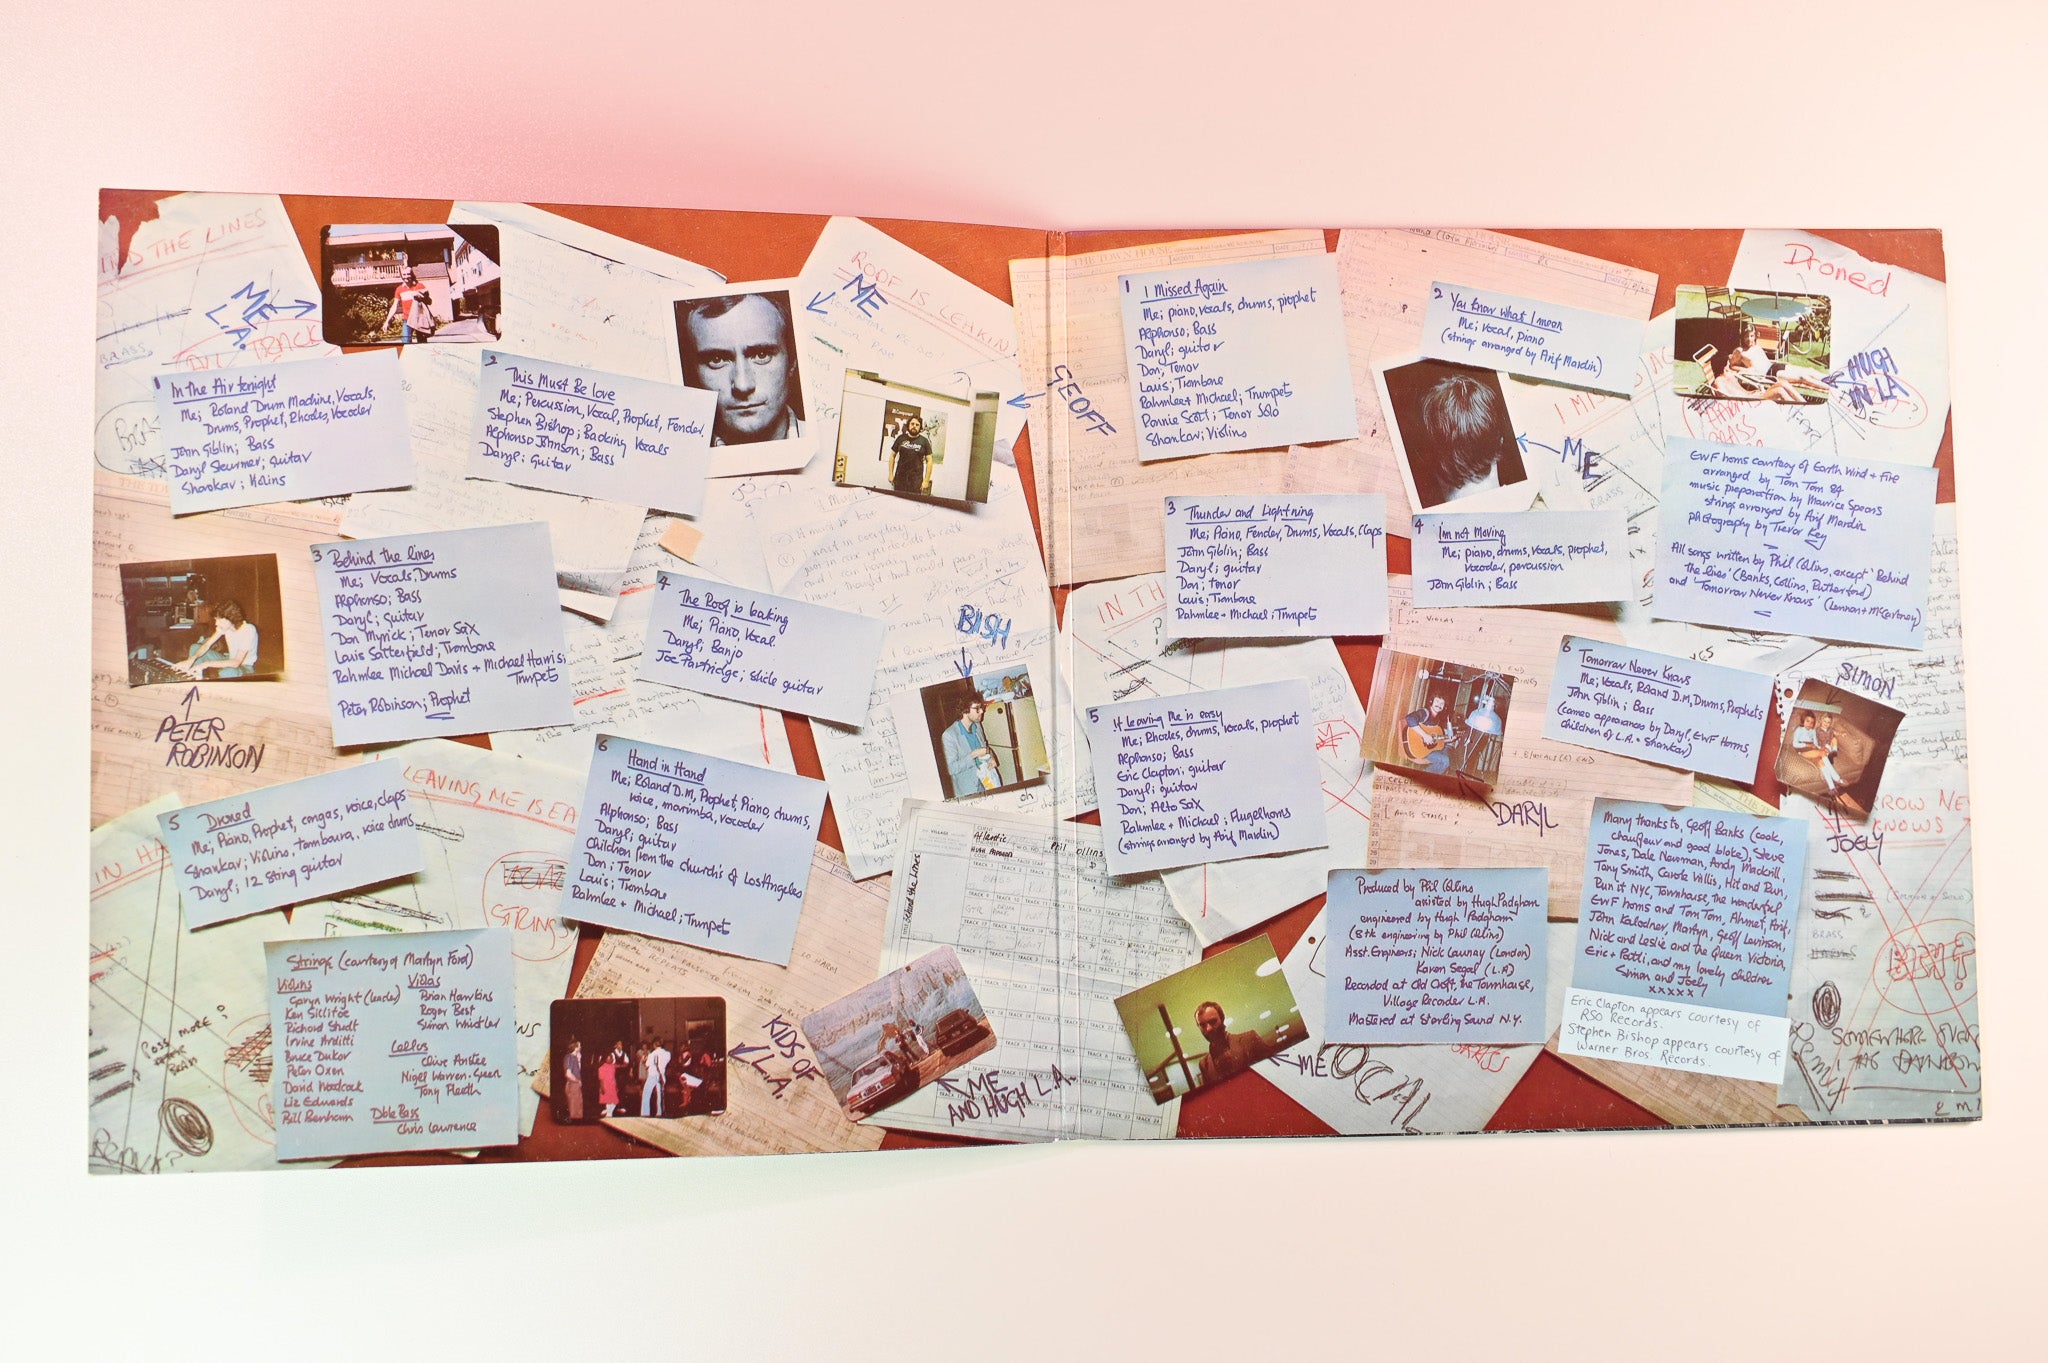 IND THE LINES
ME
L.A.
1 In the Air tonight
Me; Roland Drum Machine, Vocals,
Drums, Prophet, Rhodes, Vocoder
John Giblin; Bass
Daryl Steurmer; guitar
Shankar; Violins
2 This Must Be love
Me; Percussion, Vocal, Prophet, Fender
Stephen Bishop; Backing Vocals
Alphonso Johnson; Bass
Daryl; Guitar
ROOF IS LEAKIN
ME
GEOFF
3 Behind the lines
Me; Vocals, Drums
Alphonso; Bass
Daryl; guitar
Don Myrick; Tenor Sax
Louis Satterfield; Trombone
Rahmlee Michael Davis + Michael Harris;
Trumpets
Peter Robinson; Prophet
PETER
ROBINSON
4 The Roof is leaking
Me; Piano, Vocal
Daryl; Banjo
Joe Partridge; slide guitar
BISH
LEAVING ME IS EA
5 Droned
Me; Piano, Prophet, congas, voice, claps
Shankar; Violins, tamboura, voice drums
Daryl; 12 String guitar
6 Hand in Hand
Me; Roland D.M, Prophet, Piano, drums,
voice, marimba, vocoder
Alphonso; Bass
Daryl; guitar
Children from the church's of Los Angeles
Don; Tenor
Louis; Trombone
Rahmlee + Michael; Trumpet
STRINGS
Strings (courtesy of Martyn Ford)
Violins
Garvin Wright (leader)
Ken Sillitoe
Richard Studt
Irvine Arditti
Bruce Dukov
Peter Oxen
David Woodcock
Liz Edwards
Bill Benham
Violas
Brian Hawkins
Roger Best
Simon Whistler
Cellos
Clive Anstee
Nigel Warren-Green
Tony Pleeth
Dble Bass
Chris Lawrence
KIDS OF
L.A.
ME
AND HUGH L.A.
Atlantic
Phil Collins
Behind the Lines
THE TOWN HOUSE
1 I Missed Again
Me; piano, vocals, drums, prophet
Alphonso; Bass
Daryl; guitar
Don; Tenor
Louis; Trombone
Rahmlee + Michael; Trumpets
Ronnie Scott; Tenor Solo
Shankar; Violins
2 You know what I mean
Me; Vocal, piano
(strings arranged by Arif Mardin)
ME
Droned
HUGH
IN LA
EWF horns courtesy of Earth Wind + Fire
arranged by Tom Tom 84
music preparation by Maurice Spears
strings arranged by Arif Mardin
photography by Trevor Key
All songs written by Phil Collins, except 'Behind
the lines' (Banks, Collins, Rutherford)
and 'Tomorrow Never Knows' (Lennon + McCartney)
3 Thunder and Lightning
Me; Piano, Fender, Drums, Vocals, Claps
John Giblin; Bass
Daryl; guitar
Don; tenor
Louis; Trombone
Rahmlee + Michael; Trumpets
4 I'm not Moving
Me; piano, drums, vocals, prophet,
vocoder, percussion
John Giblin; Bass
IN TH
5 If leaving Me is easy
Me; Rhodes, drums, vocals, prophet
Alphonso; Bass
Eric Clapton; guitar
Daryl; guitar
Don; Alto Sax
Rahmlee + Michael; Flugelhorns
(strings arranged by Arif Mardin)
DARYL
6 Tomorrow Never Knows
Me; Vocals, Roland D.M, Drums, Prophets
John Giblin; Bass
(cameo appearances by Daryl, EWF Horns,
children of L.A. + Shankar)
SIMON
JOELY
ROW NE
KNOWS
Produced by Phil Collins
assisted by Hugh Padgham
engineered by Hugh Padgham
(8 tk engineering by Phil Collins)
Asst. Engineers; Nick Launay (London)
Karen Segal (L.A)
Recorded at Old Croft, the Townhouse,
Village Recorder L.A.
Mastered at Sterling Sound N.Y.
ME
Many thanks to, Geoff Banks (cook,
chauffeur and good bloke), Steve
Jones, Dale Newman, Andy Mackrill,
Tony Smith, Carole Willis, Hit and Run,
Run it NYC, Townhouse, the wonderful
EWF horns and Tom Tom, Ahmet, Arif,
John Kalodner, Martyn, Geoff Levinson,
Nick and Leslie and the Queen Victoria,
Eric + Patti, and my lovely children
Simon and Joely
xxxxx
Eric Clapton appears courtesy of
RSO Records.
Stephen Bishop appears courtesy of
Warner Bros. Records.
BISH?
SOMEWHERE OVER